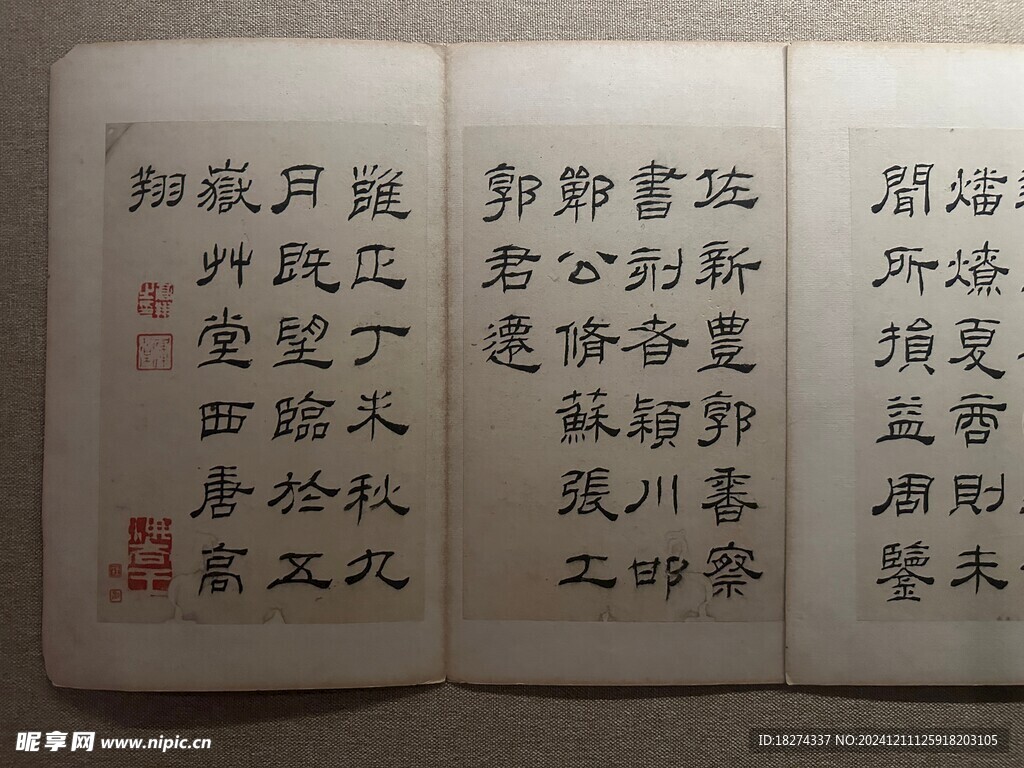 燔燎夏商則未
聞所損益周鑒
佐新豊郭香察
書刻者潁川邯
鄲公脩蘇張工
郭君遷
雝正丁未秋九
月既望臨於五
嶽艸堂西唐高
翔
昵享网 www.nipic.cn
ID:18274337 NO:20241211125918203105